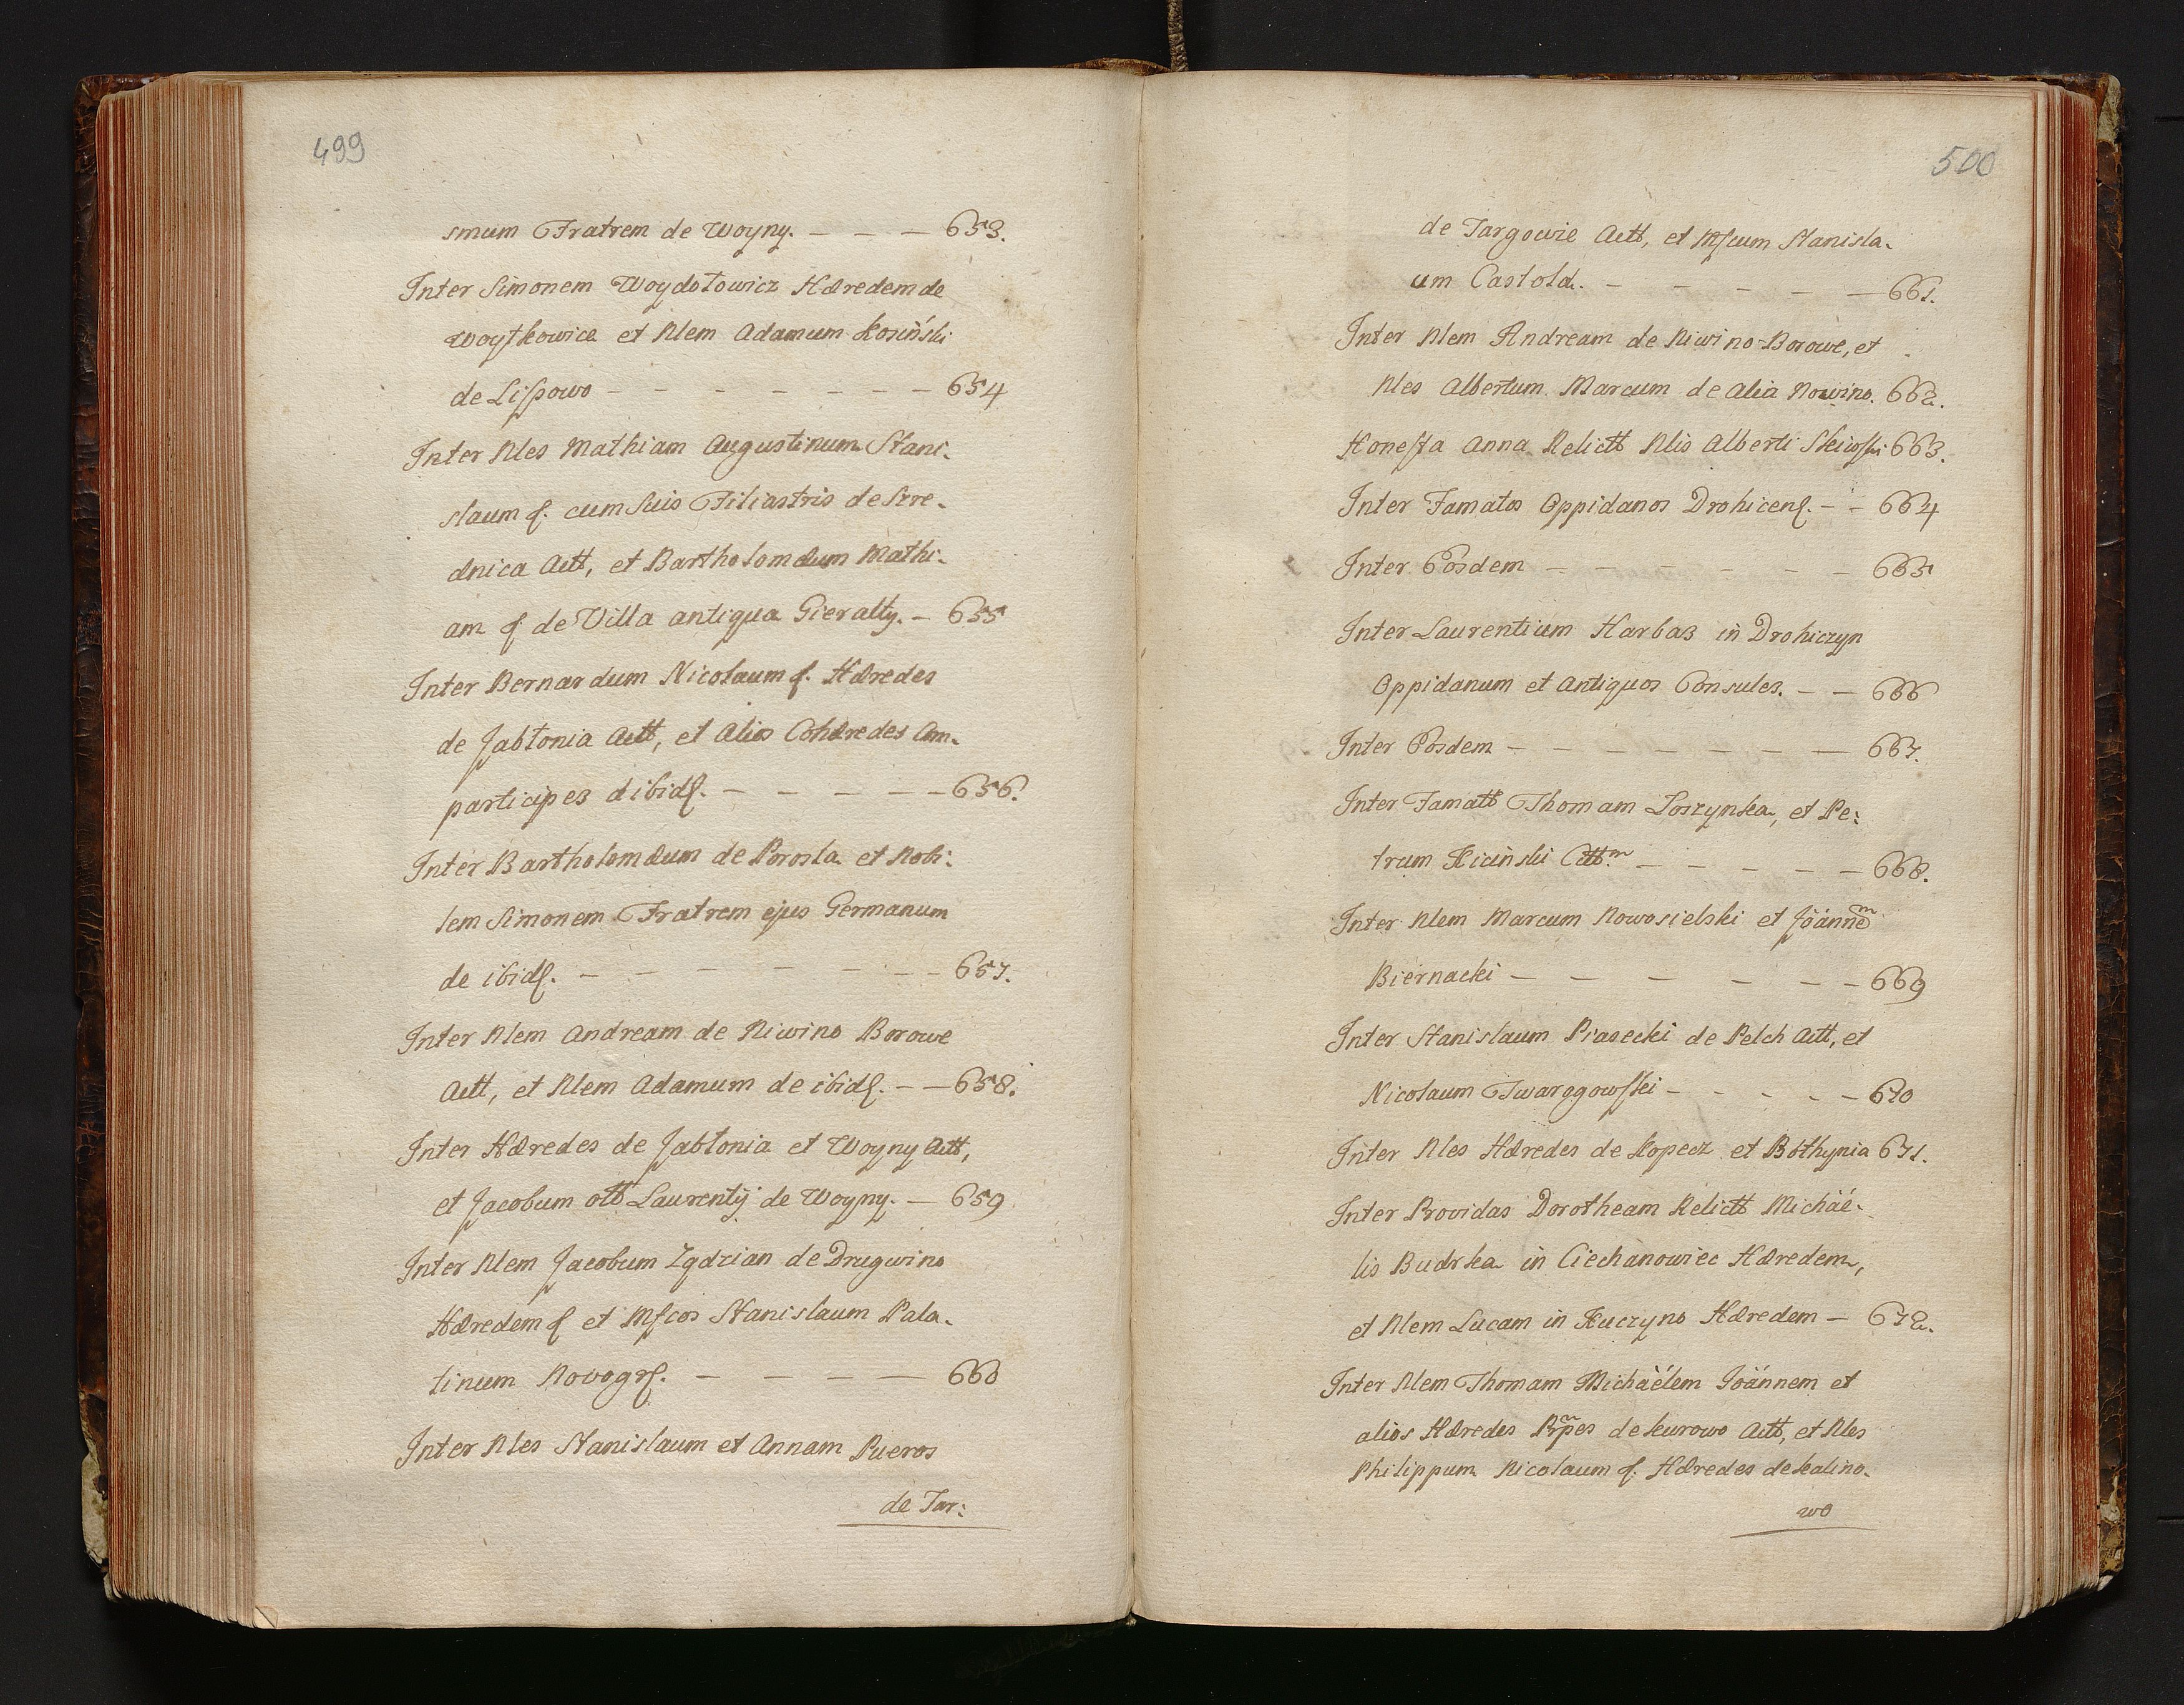 499
smum Fratrem de Woyny. — — — 653.
Inter Simonem Woydołowicz Hæredem de
Woytkowice et Nlem Adamum Kosiński
de Lispowo — — — — — — — 654
Inter Nles Mathiam Augustinum Stani-
slaum &. cum suis Filiastris de Sre-
dnica Actt, et Bartholomæum Mathi-
am & de Villa antiqua Gieralty. — 655
Inter Bernardum Nicolaum &. Hæredes
de Jabłonia Actt, et alios Cohæredes Com-
participes dibid. — — — — — 656.
Inter Bartholomæum de Porosla et Nobi:
lem Simonem Fratrem ejus Germanum
de ibid. — — — — — — — 657.
Inter Nlem Andream de Niwino Borowe
Actt, et Nlem Adamum de ibid. — — 658.
Inter Hæredes de Jabłonia et Woyny Actt,
et Jacobum ott Laurentij de Woyny. — 659
Inter Nlem Jacobum Ządzian de Drugwino
Hæredem & et Mfcos Stanislaum Pala-
tinum Novogr. — — — — 660
Inter Nles Stanislaum et Annam Pueros
de Tar:
500
de Targowie Actt, et Mfcum Stanisla-
um Castold. — — — — — 661.
Inter Nlem Andream de Niwino-Borowe, et
Nles Albertum Marcum de alia Nowino. 662.
Honesta Anna Relictt Nlis Alberti 663.
Inter Famatos Oppidanos Drohicens. — — 664
Inter Eosdem — — — — — — — 665
Inter Laurentium Harbaz in Drohiczyn
Oppidanum et Antiquos Consules. — — 666
Inter Eosdem — — — — — — — 667.
Inter Famatt Thomam Loszynka, et Pe:
trum Kiciński — — — — — 668.
Inter Nlem Marcum Nowosielski et Jöännem
Biernacki — — — — — — 669
Inter Stanislaum Piasecki de Pelch Actt, et
Nicolaum Twarogowski — — — — — 670
Inter Nles Hæredes de Kopecz et Bothynia 671.
Inter Providas Dorotheam Relictt Michäé-
lis Budrka in Ciechanowiec Hæredem,
et Nlem Lucam in Kuczyno Hæredem — 672.
Inter Nlem Thomam Michäélem Jöännem et
alios Hæredes de Kurowo Actt, et Nles
Philippum Nicolaum &. Hæredes de Kalino-
wo